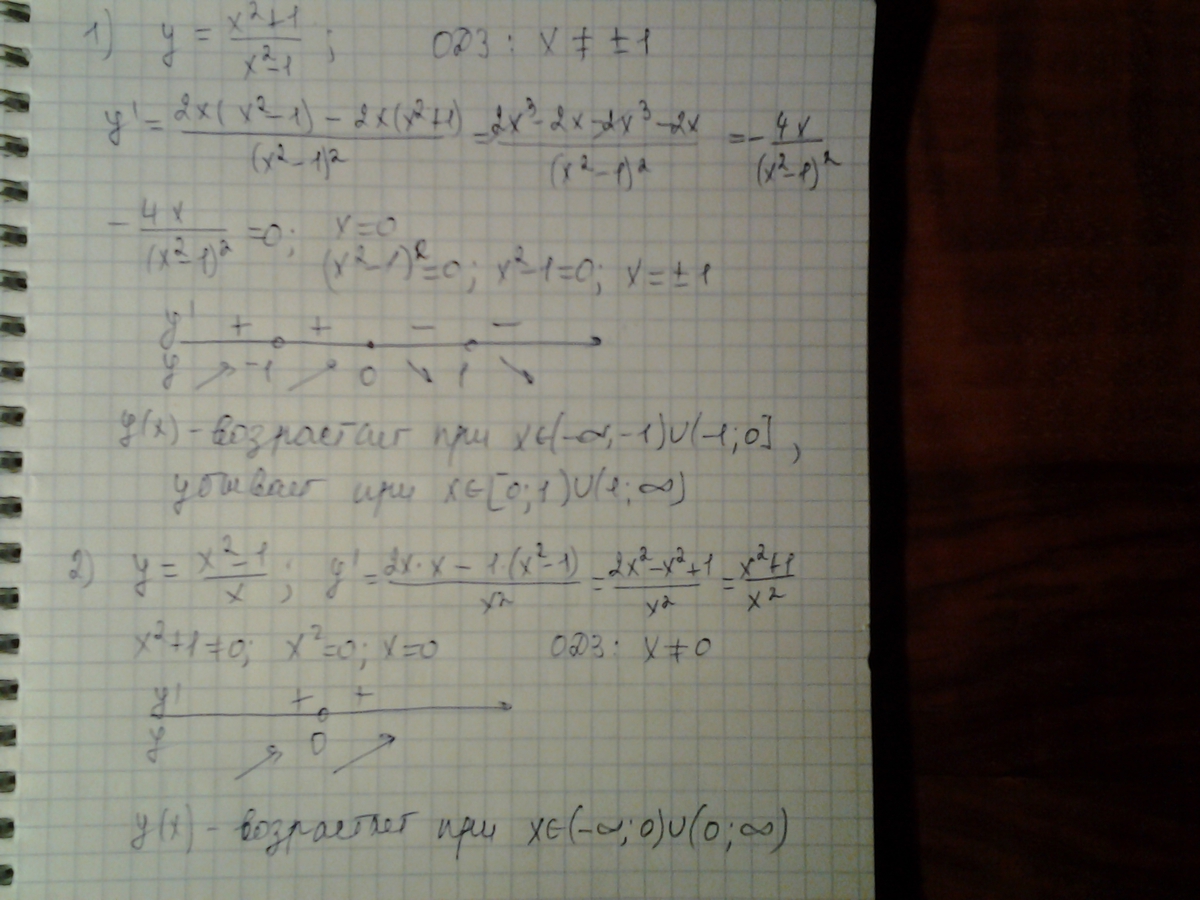 1) y = (x²+1)/(x²-1); ОДЗ: x ≠ ±1
y' = (2x(x²-1) - 2x(x²+1))/(x²-1)² = (2x³-2x-2x³-2x)/(x²-1)² = -4x/(x²-1)²
-4x/(x²-1)² = 0; x=0
(x²-1)²=0; x²-1=0; x=±1
y' + + - -
y ↗ -1 ↗ 0 ↘ 1 ↘
y(x) - возрастает при x∈(-∞;-1)∪(-1;0],
убывает при x∈[0;1)∪(1;∞)
2) y = (x²-1)/x; y' = (2x·x - 1·(x²-1))/x² = (2x²-x²+1)/x² = (x²+1)/x²
x²+1≠0; x²=0; x=0 ОДЗ: x≠0
y' + +
y ↗ 0 ↗
y(x) - возрастает при x∈(-∞;0)∪(0;∞)